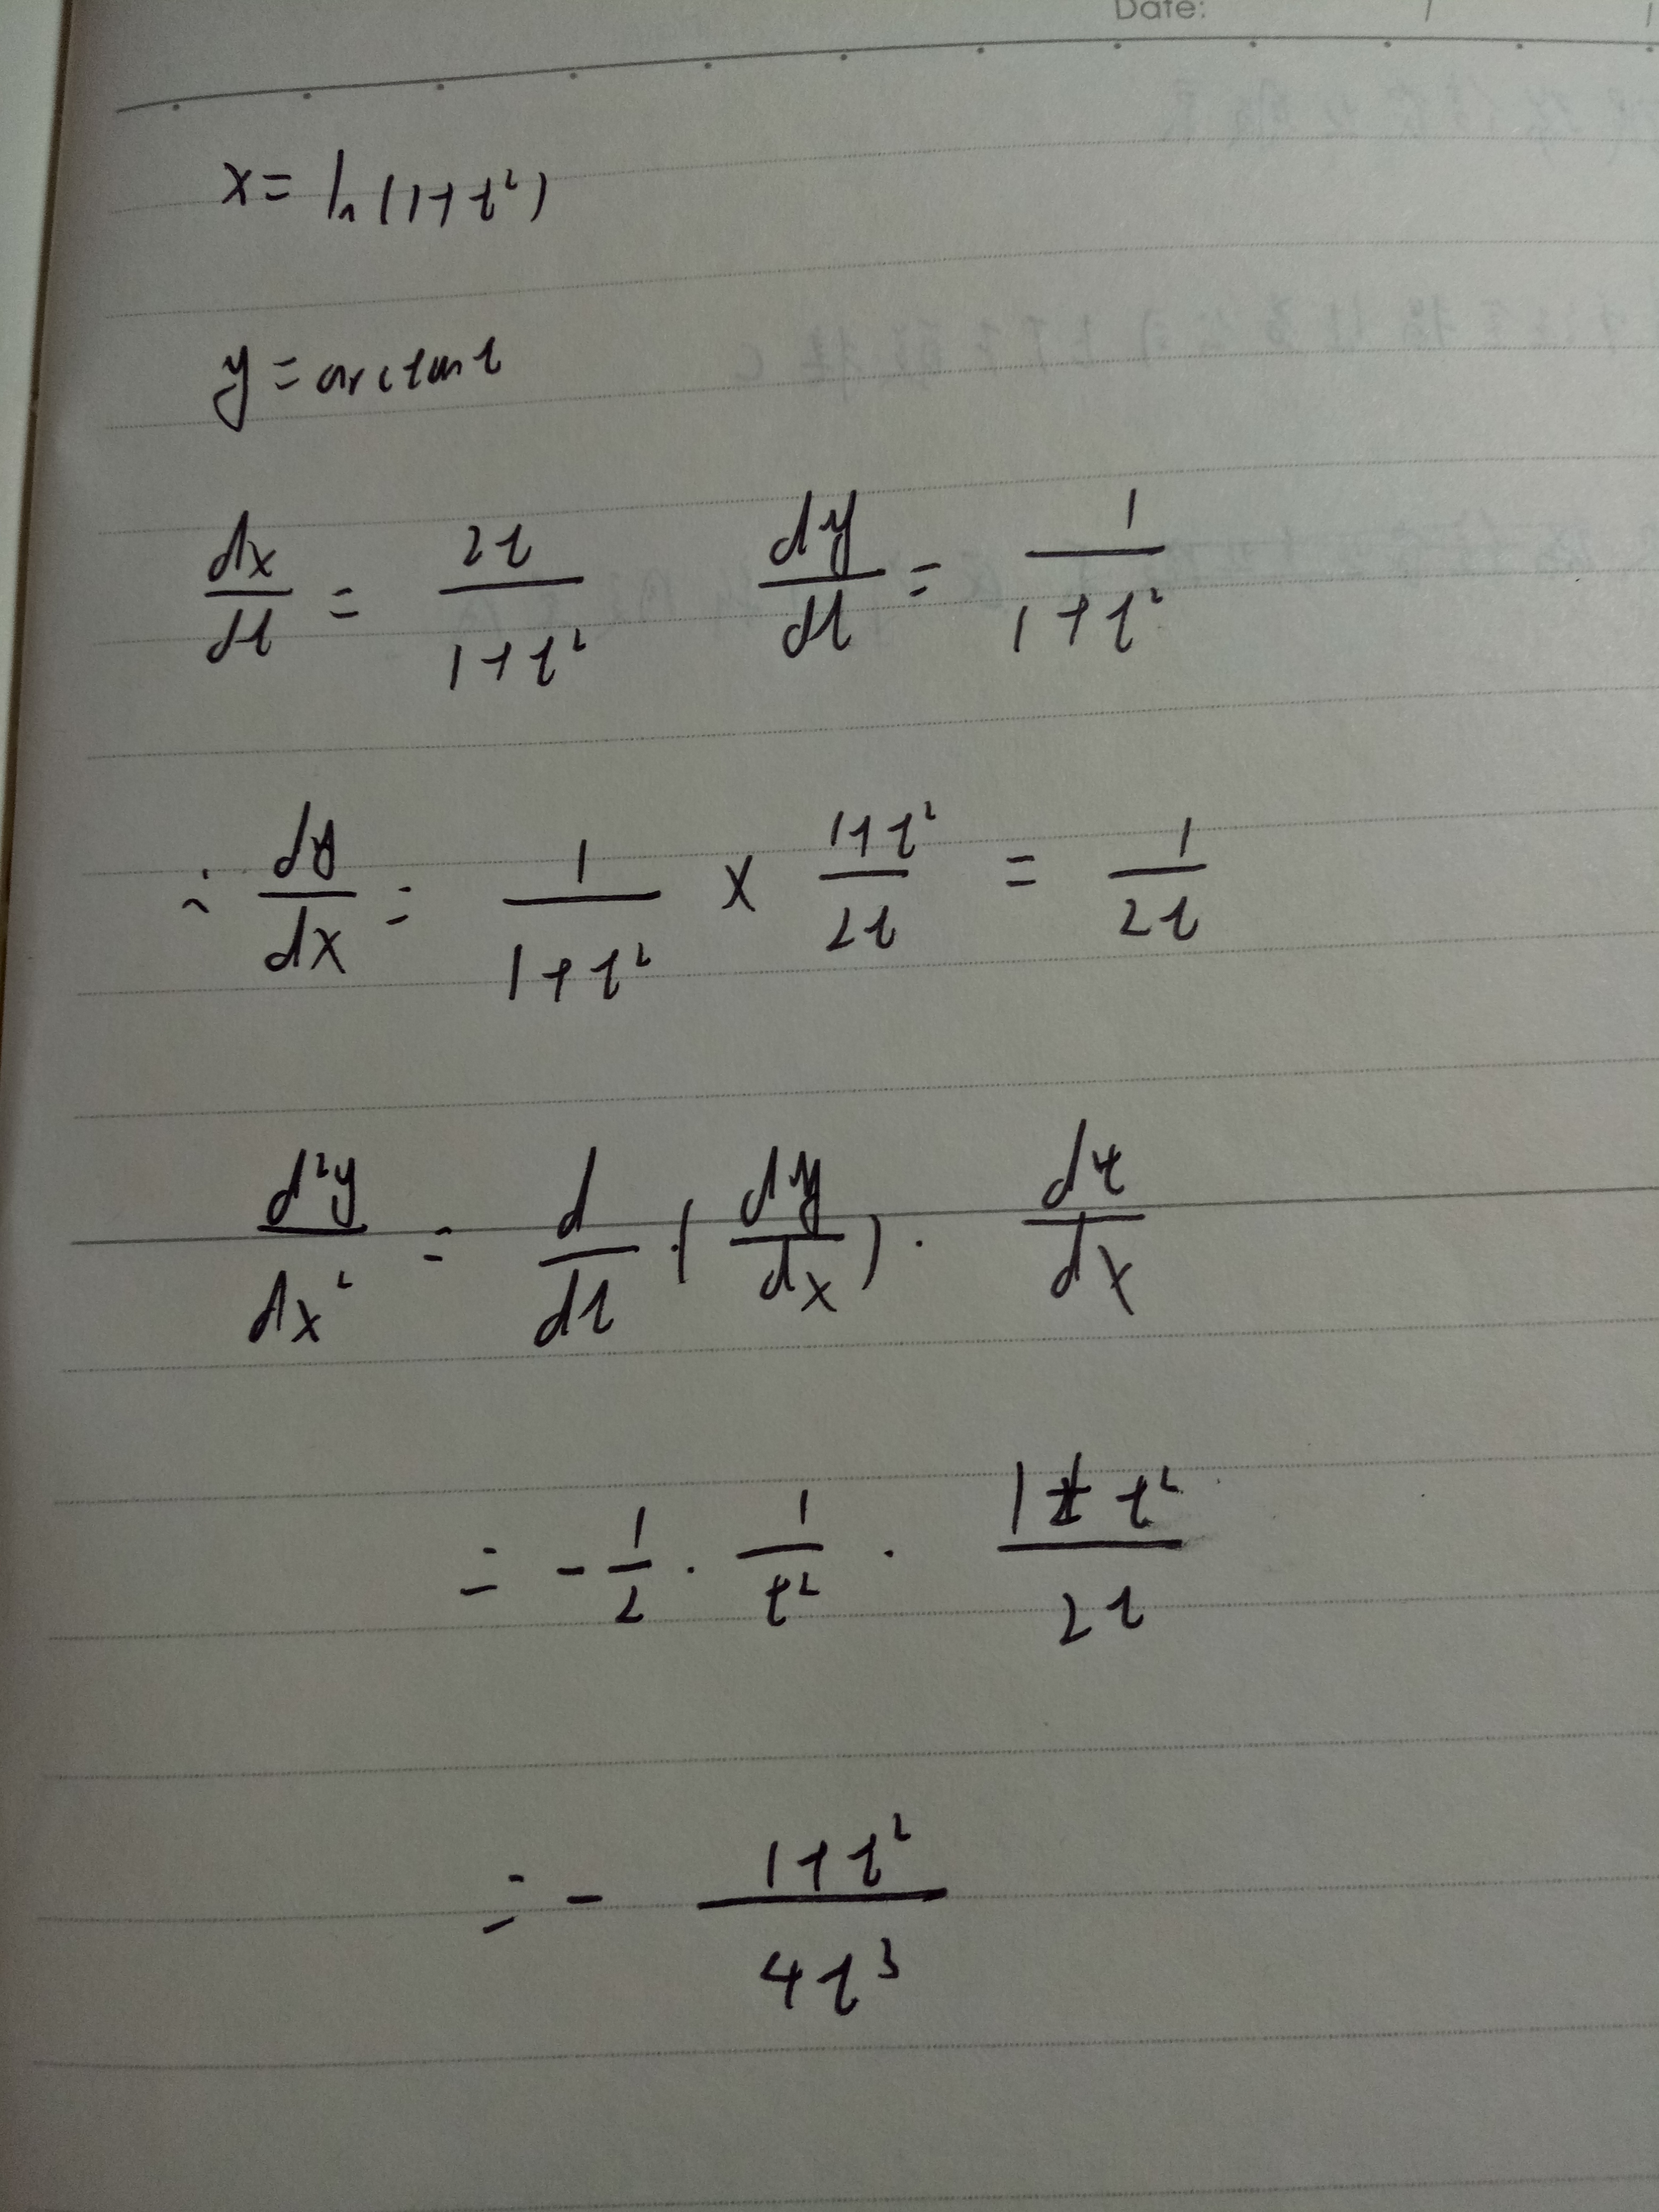 Date: / /
x = ln(1+t²)
y = arctan t
dx/dt = 2t/(1+t²) dy/dt = 1/(1+t²)
∴ dy/dx = 1/(1+t²) × (1+t²)/(2t) = 1/(2t)
d²y/dx² = d/dt · (dy/dx) · dt/dx
= -1/2 · 1/t² · (1+t²)/(2t)
= - (1+t²)/(4t³)